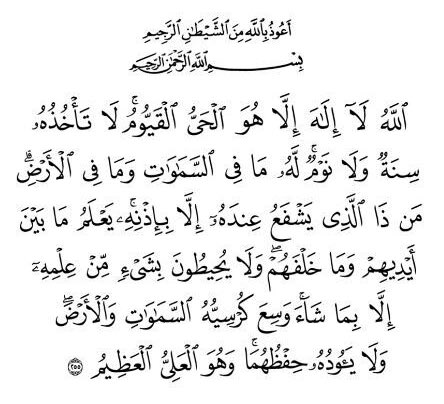 أَعُوذُ بِاللَّهِ مِنَ الشَّيْطَانِ الرَّجِيمِ
بِسْمِ اللَّهِ الرَّحْمَٰنِ الرَّحِيمِ
اللَّهُ لَآ إِلَٰهَ إِلَّا هُوَ ٱلْحَىُّ ٱلْقَيُّومُ ۚ لَا تَأْخُذُهُۥ
سِنَةٌ وَلَا نَوْمٌ ۚ لَّهُۥ مَا فِى ٱلسَّمَٰوَٰتِ وَمَا فِى ٱلْأَرْضِ ۗ
مَن ذَا ٱلَّذِى يَشْفَعُ عِندَهُۥٓ إِلَّا بِإِذْنِهِۦ ۚ يَعْلَمُ مَا بَيْنَ
أَيْدِيهِمْ وَمَا خَلْفَهُمْ ۖ وَلَا يُحِيطُونَ بِشَىْءٍ مِّنْ عِلْمِهِۦٓ
إِلَّا بِمَا شَآءَ ۚ وَسِعَ كُرْسِيُّهُ ٱلسَّمَٰوَٰتِ وَٱلْأَرْضَ ۖ
وَلَا يَـُٔودُهُۥ حِفْظُهُمَا ۚ وَهُوَ ٱلْعَلِىُّ ٱلْعَظِيمُ ٢٥٥